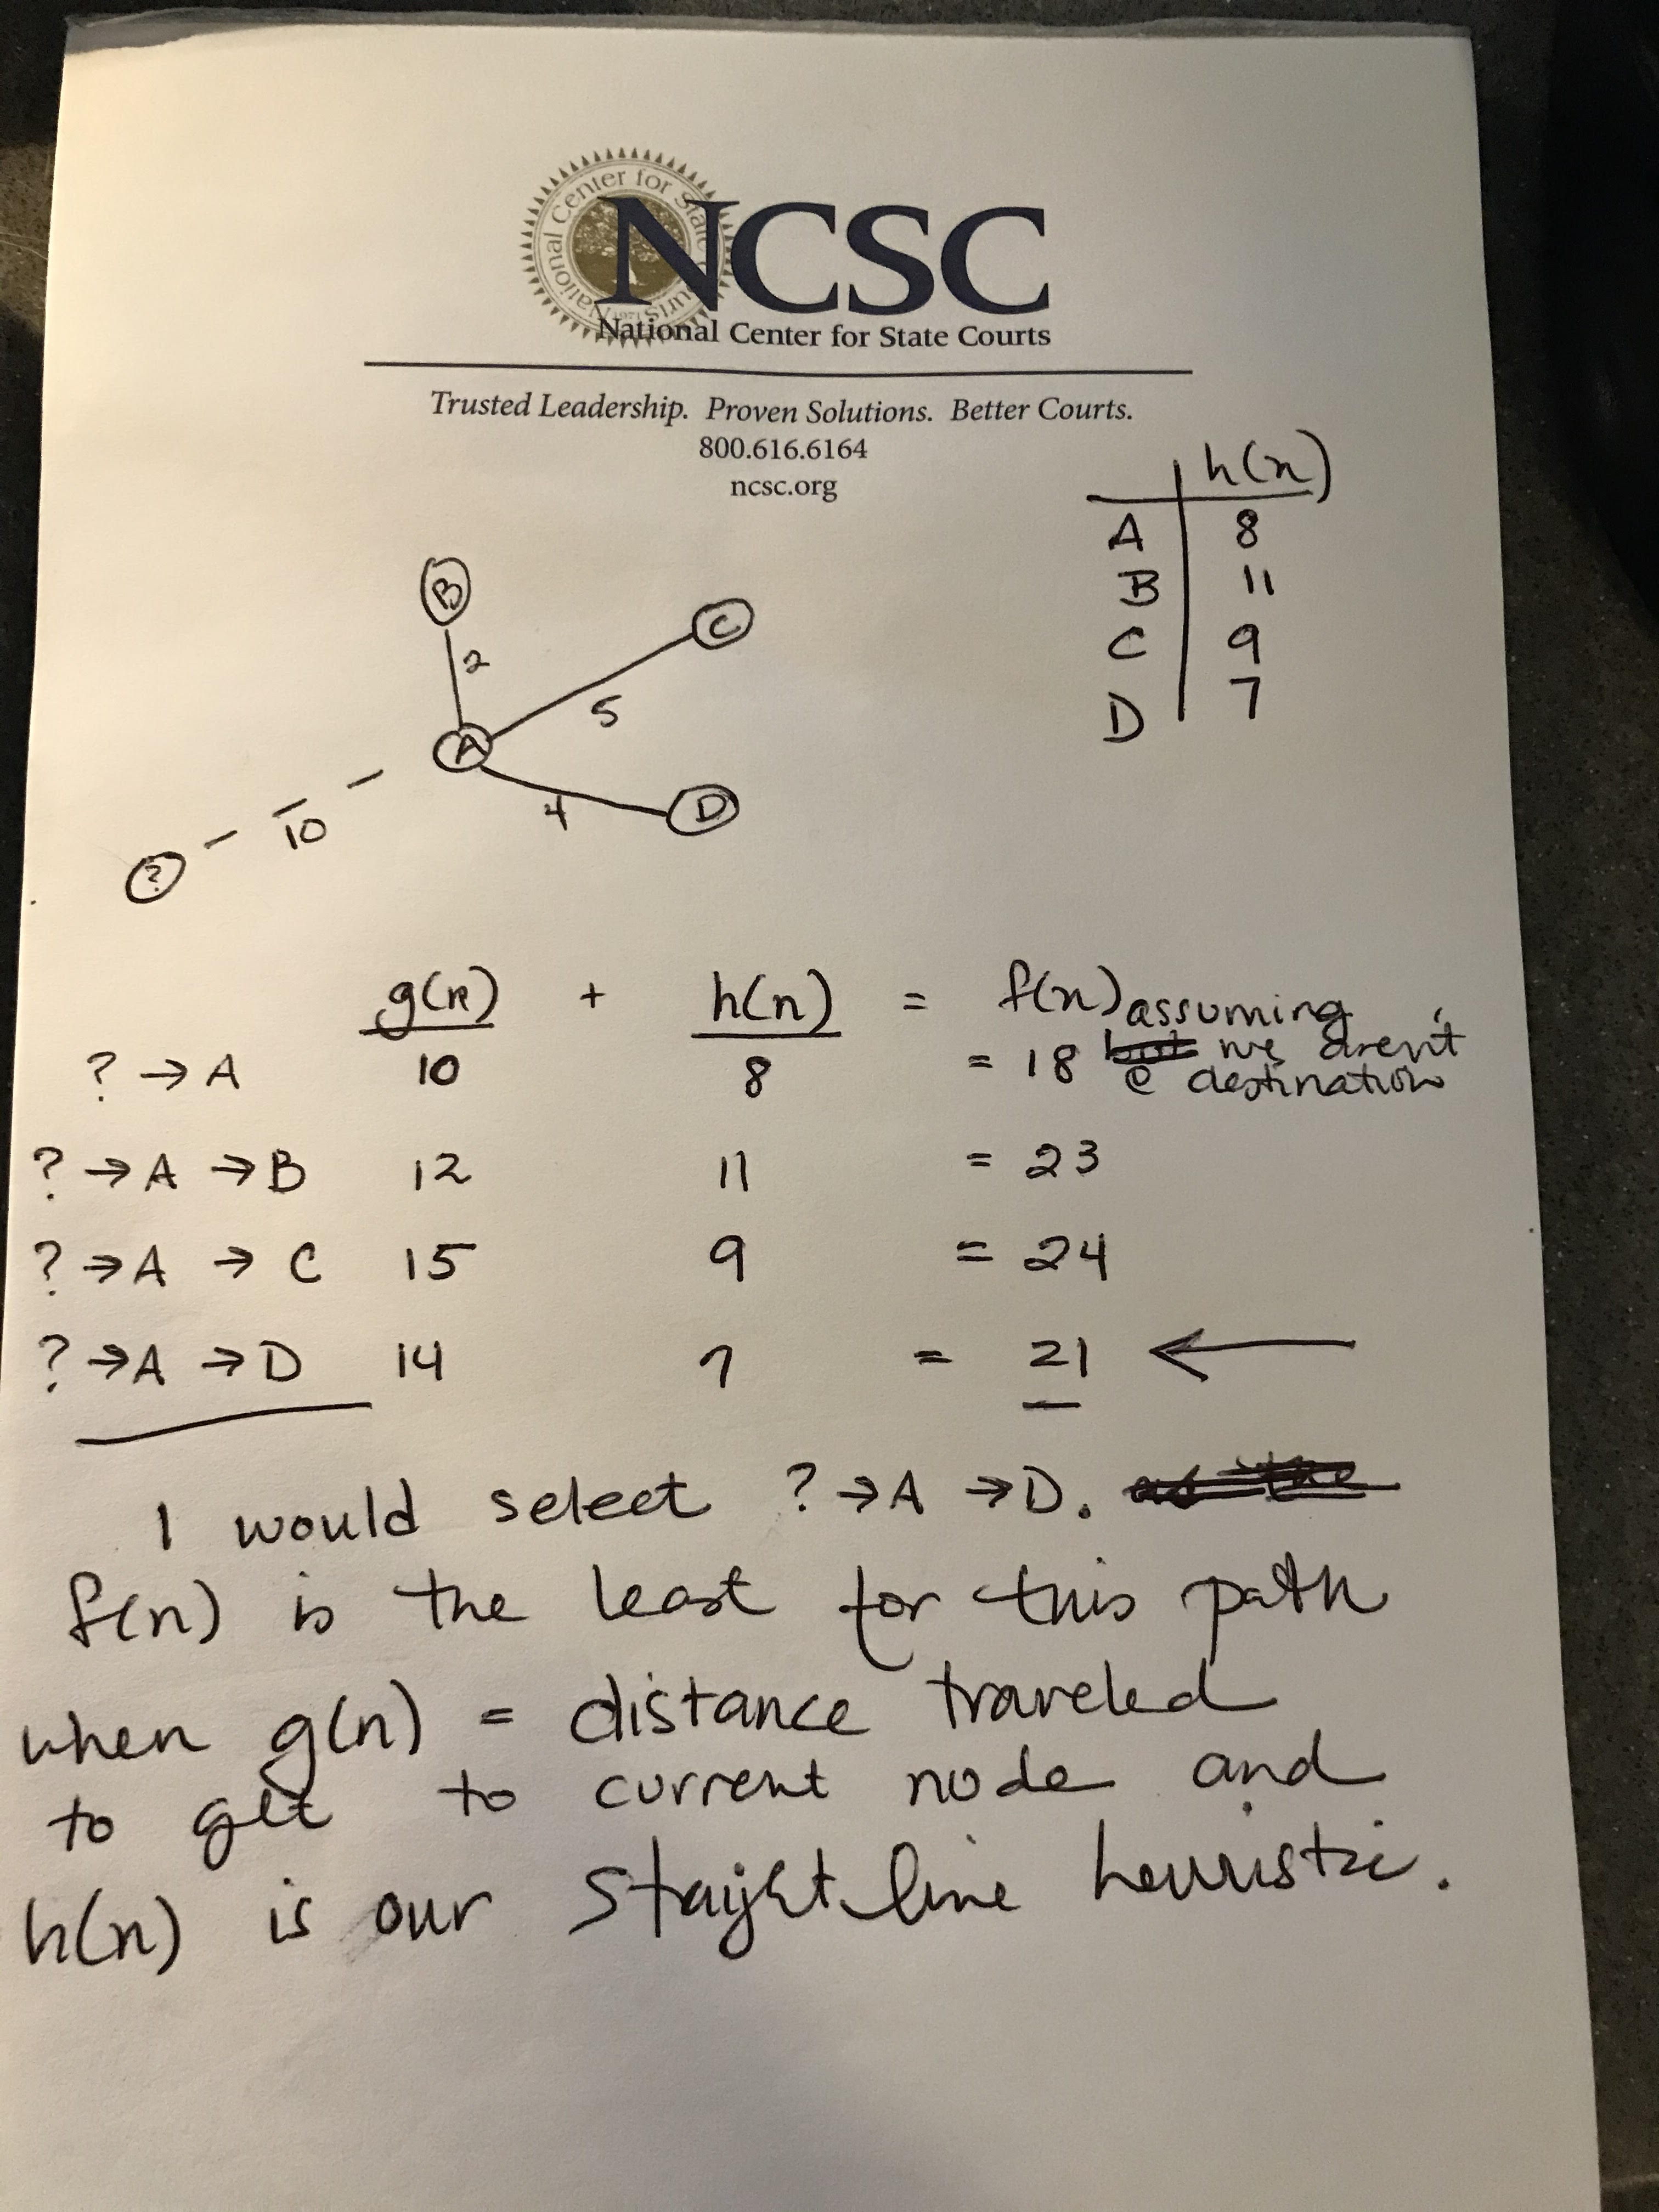 National Center for State Courts
NCSC
National Center for State Courts
Trusted Leadership. Proven Solutions. Better Courts.
800.616.6164
ncsc.org
h(n)
A 8
B 11
C 9
D 7
B
2
C
5
A
4
D
10
?
g(n) + h(n) = f(n) assuming
? → A 10 8 = 18 but we aren't
@ destination
? → A → B 12 11 = 23
? → A → C 15 9 = 24
? → A → D 14 7 = 21 ←
I would select ? → A → D. as the
f(n) is the least for this path
when g(n) = distance traveled
to get to current node and
h(n) is our straight line heuristic.